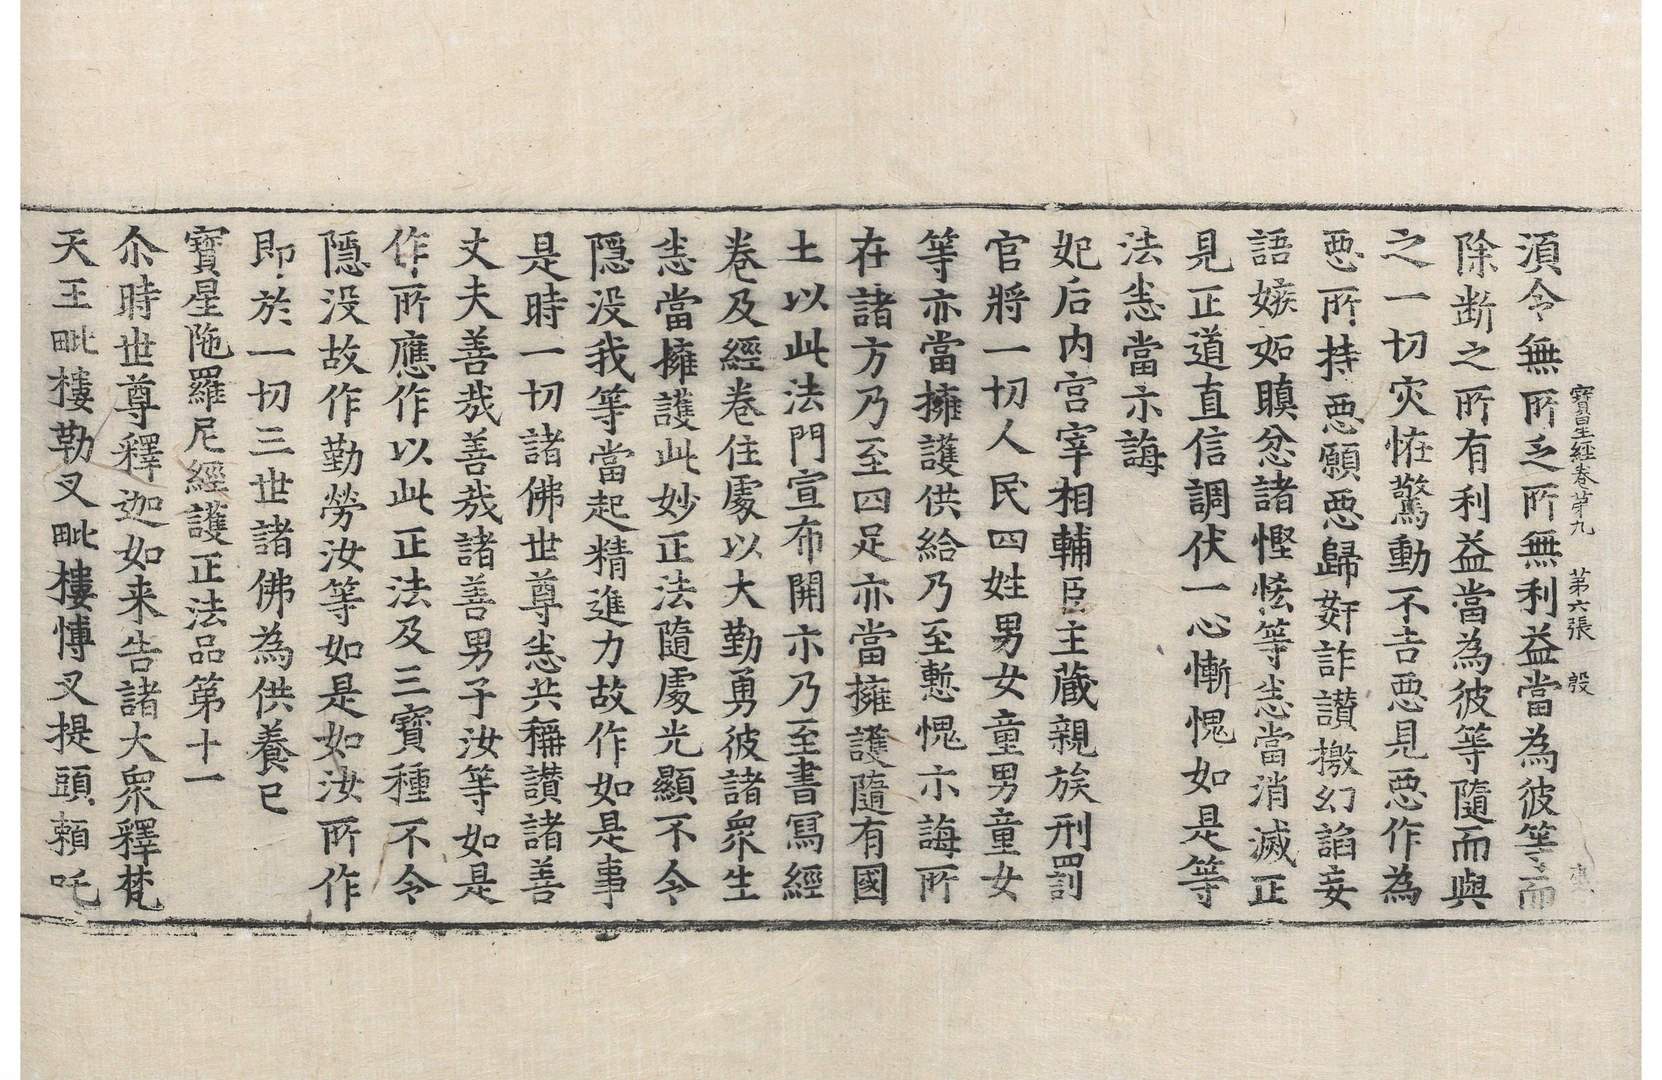 寶星經卷苐九 第六張 殷
湏令無所乏所無利益當為彼等而
除斷之所有利益當為彼等隨而與
之一切灾恠驚動不吉惡見惡作為
惡所持惡願惡歸姧詐讃擞幻諂妄
語嫉妬瞋忿諸慳恡等恚當消滅正
見正道直信調伏一心慚愧如是等
法恚當示誨
妃后内宫宰相輔臣主蔵親族刑罰
官將一切人民四姓男女童男童女
等亦當擁護供給乃至慙愧示誨所
在諸方乃至四足亦當擁護隨有國
土以此法門宣布開示乃至書寫經
卷及經卷住處以大勤勇彼諸衆生
恚當擁護此妙正法隨處光顯不令
隱没我等當起精進力故作如是事
是時一切諸佛世尊恚共稱讃諸善
丈夫善哉善哉諸善男子汝等如是
作所應作以此正法及三寶種不令
隱没故作勤勞汝等如是如汝所作
即於一切三世諸佛為供養已
寶星陁羅尼經護正法品第十一
尒時世尊釋迦如来告諸大衆釋梵
天王毗樓勒叉毗樓愽叉提頭頼吒